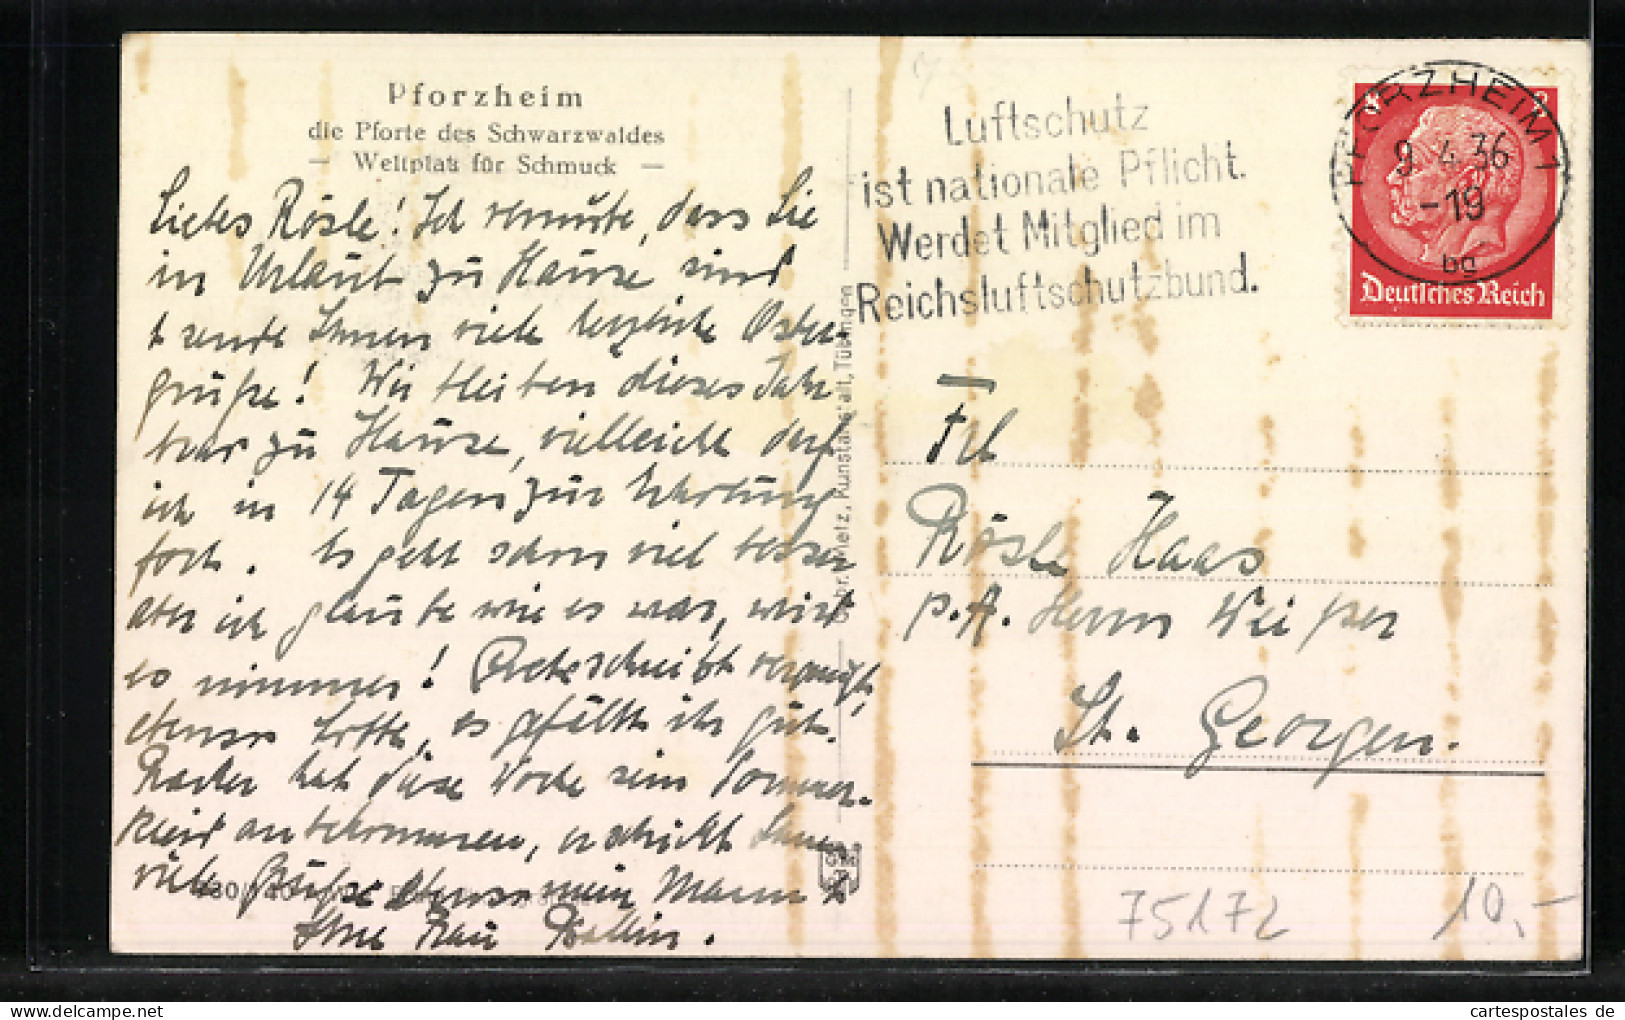 Pforzheim
die Pforte des Schwarzwaldes
— Weltplatz für Schmuck —
Liebes Rösle! Ich vermute, dass Sie
in Urlaub zu Hause sind
& sende Ihnen viele herzliche Oster-
grüße! Wir bleiben dieses Jahr
zu Hause, vielleicht darf
ich in 14 Tagen zur
fort. Es geht schon viel besser
aber ich glaube wie es war, wird
es nimmer! schreibt vergnügt,
ebenso Lotte, es gefällt ihr gut.
hat diese Woche sein Sommer-
kleid anbekommen, er schickt Ihnen
viele Grüße ebenso mein Mann &
Ihre Frau
Gebr. Metz, Kunstanstalt, Tübingen
Luftschutz
ist nationale Pflicht.
Werdet Mitglied im
Reichsluftschutzbund.
PFORZHEIM 1
9.4.36
-19
bg
8 8
Deutsches Reich
Frl
Rösle Haas
p.A. Herrn
St. Georgen.
75172
10,-
www.cartespostales.de